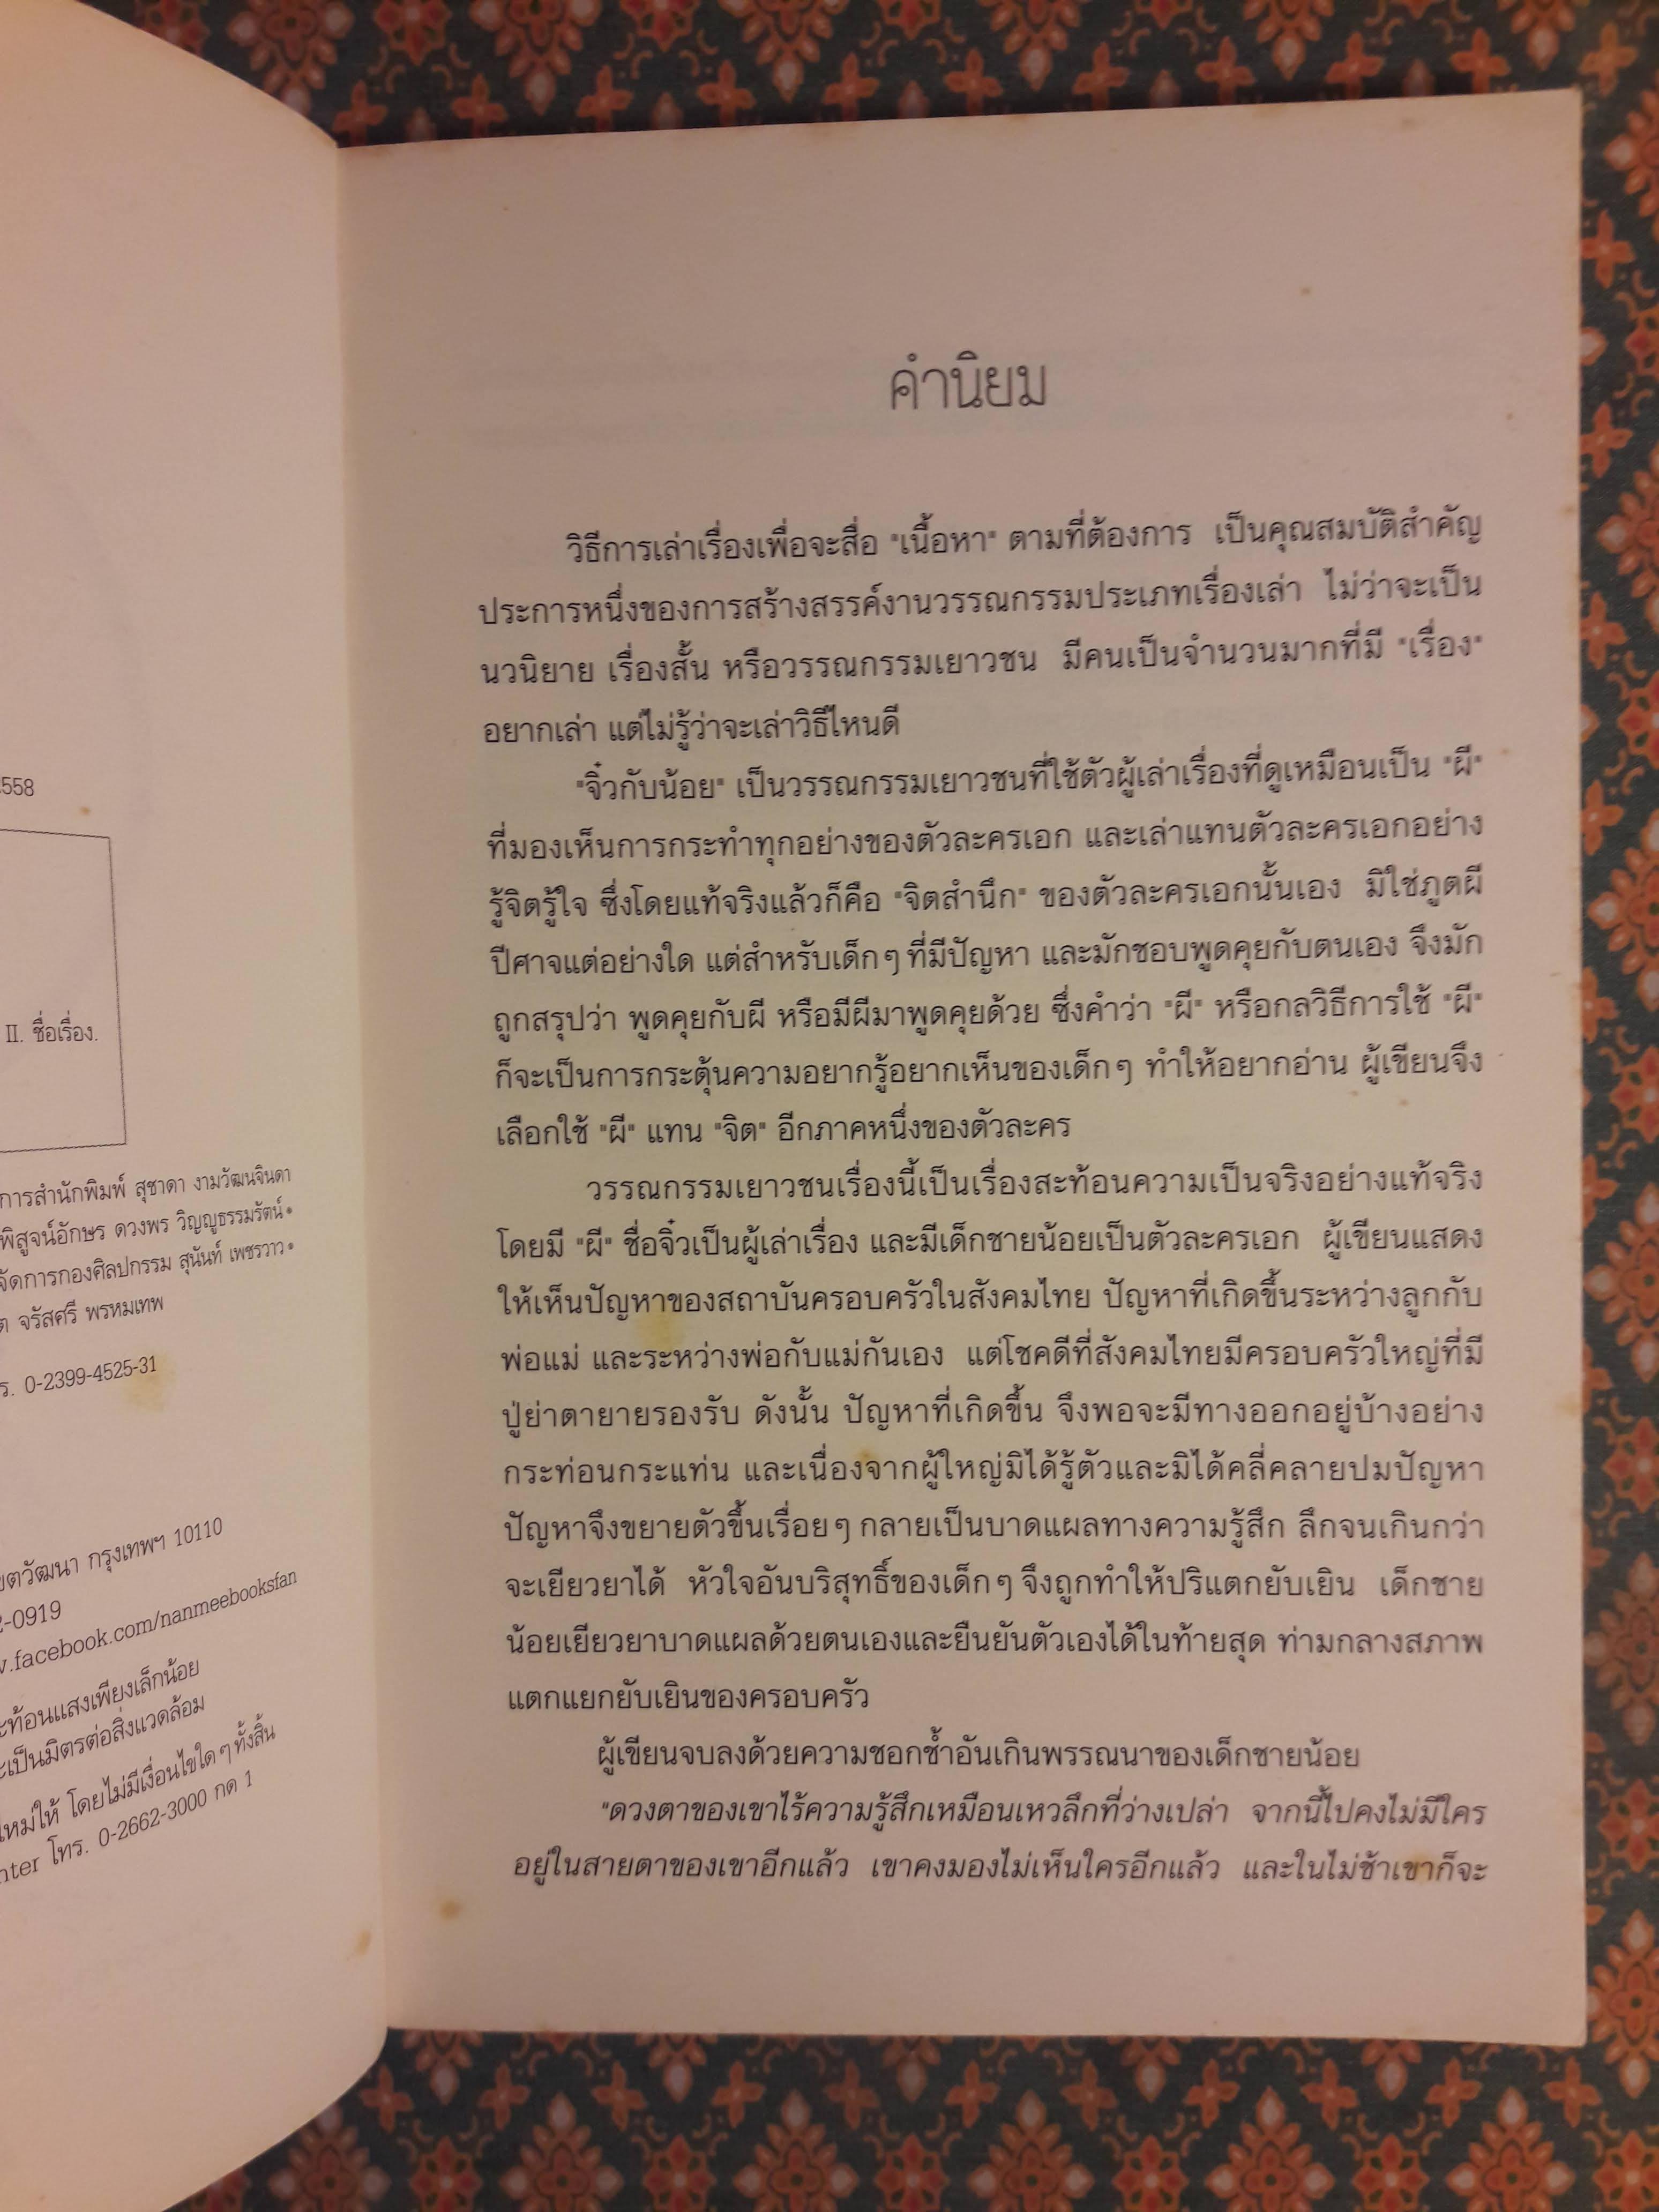 2558
II. ชื่อเรื่อง.
การสำนักพิมพ์ สุชาดา งามวัฒนจินดา
พิสูจน์อักษร ดวงพร วิญญูธรรมรัตน์ •
จัดการกองศิลปกรรม สุนันท์ เพชรวาว •
จรัสศรี พรหมเทพ
0-2399-4525-31
เขตวัฒนา กรุงเทพฯ 10110
2-0919
w.facebook.com/nanmeebooksfan
ะท้อนแสงเพียงเล็กน้อย
ะเป็นมิตรต่อสิ่งแวดล้อม
ใหม่ให้ โดยไม่มีเงื่อนไขใด ๆ ทั้งสิ้น
nter โทร. 0-2662-3000 กด 1
คำนิยม
วิธีการเล่าเรื่องเพื่อจะสื่อ "เนื้อหา" ตามที่ต้องการ เป็นคุณสมบัติสำคัญ
ประการหนึ่งของการสร้างสรรค์งานวรรณกรรมประเภทเรื่องเล่า ไม่ว่าจะเป็น
นวนิยาย เรื่องสั้น หรือวรรณกรรมเยาวชน มีคนเป็นจำนวนมากที่มี "เรื่อง"
อยากเล่า แต่ไม่รู้ว่าจะเล่าวิธีไหนดี
"จิ๋วกับน้อย" เป็นวรรณกรรมเยาวชนที่ใช้ตัวผู้เล่าเรื่องที่ดูเหมือนเป็น "ผี"
ที่มองเห็นการกระทำทุกอย่างของตัวละครเอก และเล่าแทนตัวละครเอกอย่าง
รู้จิตรู้ใจ ซึ่งโดยแท้จริงแล้วก็คือ "จิตสำนึก" ของตัวละครเอกนั้นเอง มิใช่ภูตผี
ปีศาจแต่อย่างใด แต่สำหรับเด็ก ๆ ที่มีปัญหา และมักชอบพูดคุยกับตนเอง จึงมัก
ถูกสรุปว่า พูดคุยกับผี หรือมีผีมาพูดคุยด้วย ซึ่งคำว่า "ผี" หรือกลวิธีการใช้ "ผี"
ก็จะเป็นการกระตุ้นความอยากรู้อยากเห็นของเด็ก ๆ ทำให้อยากอ่าน ผู้เขียนจึง
เลือกใช้ "ผี" แทน "จิต" อีกภาคหนึ่งของตัวละคร
วรรณกรรมเยาวชนเรื่องนี้เป็นเรื่องสะท้อนความเป็นจริงอย่างแท้จริง
โดยมี "ผี" ชื่อจิ๋วเป็นผู้เล่าเรื่อง และมีเด็กชายน้อยเป็นตัวละครเอก ผู้เขียนแสดง
ให้เห็นปัญหาของสถาบันครอบครัวในสังคมไทย ปัญหาที่เกิดขึ้นระหว่างลูกกับ
พ่อแม่ และระหว่างพ่อกับแม่กันเอง แต่โชคดีที่สังคมไทยมีครอบครัวใหญ่ที่มี
ปู่ย่าตายายรองรับ ดังนั้น ปัญหาที่เกิดขึ้น จึงพอจะมีทางออกอยู่บ้างอย่าง
กระท่อนกระแท่น และเนื่องจากผู้ใหญ่มิได้รู้ตัวและมิได้คลี่คลายปมปัญหา
ปัญหาจึงขยายตัวขึ้นเรื่อย ๆ กลายเป็นบาดแผลทางความรู้สึก ลึกจนเกินกว่า
จะเยียวยาได้ หัวใจอันบริสุทธิ์ของเด็ก ๆ จึงถูกทำให้ปริแตกยับเยิน เด็กชาย
น้อยเยียวยาบาดแผลด้วยตนเองและยืนยันตัวเองได้ในท้ายสุด ท่ามกลางสภาพ
แตกแยกยับเยินของครอบครัว
ผู้เขียนจบลงด้วยความชอกช้ำอันเกินพรรณนาของเด็กชายน้อย
"ดวงตาของเขาไร้ความรู้สึกเหมือนเหวลึกที่ว่างเปล่า จากนี้ไปคงไม่มีใคร
อยู่ในสายตาของเขาอีกแล้ว เขาคงมองไม่เห็นใครอีกแล้ว และในไม่ช้าเขาก็จะ